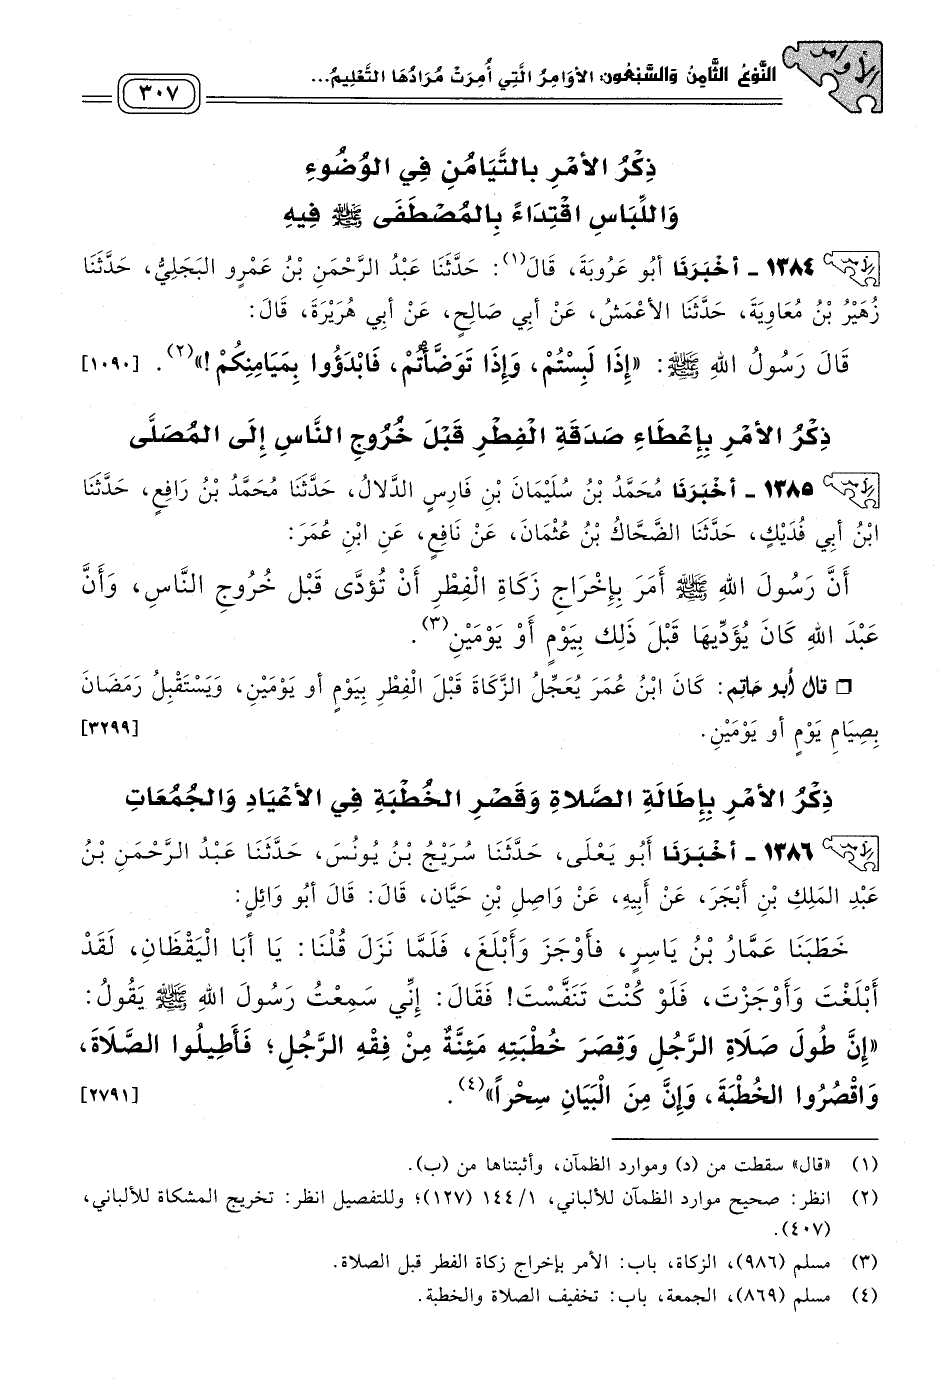 الأوامر
النَّوْعُ الثَّامِنُ وَالسَّبْعُونَ: الأَوَامِرُ الَّتِي أُمِرَتْ مُرَادُهَا التَّعْلِيمُ...
٣٠٧
ذِكْرُ الأَمْرِ بِالتَّيَامُنِ فِي الوُضُوءِ
وَاللِّبَاسِ اقْتِدَاءً بِالمُصْطَفَى ﷺ فِيهِ
١٣٨٤ ـ أَخْبَرَنَا أَبُو عَرُوبَةَ، قَالَ(١): حَدَّثَنَا عَبْدُ الرَّحْمَنِ بْنُ عَمْرٍو البَجَلِيُّ، حَدَّثَنَا
زُهَيْرُ بْنُ مُعَاوِيَةَ، حَدَّثَنَا الأَعْمَشُ، عَنْ أَبِي صَالِحٍ، عَنْ أَبِي هُرَيْرَةَ، قَالَ:
قَالَ رَسُولُ اللهِ ﷺ: «إِذَا لَبِسْتُمْ، وَإِذَا تَوَضَّأْتُمْ، فَابْدَؤُوا بِمَيَامِنِكُمْ!»(٢). [١٠٩٠]
ذِكْرُ الأَمْرِ بِإِعْطَاءِ صَدَقَةِ الْفِطْرِ قَبْلَ خُرُوجِ النَّاسِ إِلَى المُصَلَّى
١٣٨٥ ـ أَخْبَرَنَا مُحَمَّدُ بْنُ سُلَيْمَانَ بْنِ فَارِسٍ الدَّلالُ، حَدَّثَنَا مُحَمَّدُ بْنُ رَافِعٍ، حَدَّثَنَا
ابْنُ أَبِي فُدَيْكٍ، حَدَّثَنَا الضَّحَّاكُ بْنُ عُثْمَانَ، عَنْ نَافِعٍ، عَنِ ابْنِ عُمَرَ:
أَنَّ رَسُولَ اللهِ ﷺ أَمَرَ بِإِخْرَاجِ زَكَاةِ الْفِطْرِ أَنْ تُؤَدَّى قَبْلَ خُرُوجِ النَّاسِ، وَأَنَّ
عَبْدَ اللهِ كَانَ يُؤَدِّيهَا قَبْلَ ذَلِكَ بِيَوْمٍ أَوْ يَوْمَيْنِ(٣).
❑ قال أبو حاتم: كَانَ ابْنُ عُمَرَ يُعَجِّلُ الزَّكَاةَ قَبْلَ الْفِطْرِ بِيَوْمٍ أو يَوْمَيْنِ، وَيَسْتَقْبِلُ رَمَضَانَ
بِصِيَامِ يَوْمٍ أو يَوْمَيْنِ. [٣٢٩٩]
ذِكْرُ الأَمْرِ بِإِطَالَةِ الصَّلاةِ وَقَصْرِ الخُطْبَةِ فِي الأَعْيَادِ وَالجُمُعَاتِ
١٣٨٦ ـ أَخْبَرَنَا أَبُو يَعْلَى، حَدَّثَنَا سُرَيْجُ بْنُ يُونُسَ، حَدَّثَنَا عَبْدُ الرَّحْمَنِ بْنُ
عَبْدِ المَلِكِ بْنِ أَبْجَرَ، عَنْ أَبِيهِ، عَنْ وَاصِلِ بْنِ حَيَّانَ، قَالَ: قَالَ أَبُو وَائِلٍ:
خَطَبَنَا عَمَّارُ بْنُ يَاسِرٍ، فَأَوْجَزَ وَأَبْلَغَ، فَلَمَّا نَزَلَ قُلْنَا: يَا أَبَا الْيَقْظَانِ، لَقَدْ
أَبْلَغْتَ وَأَوْجَزْتَ، فَلَوْ كُنْتَ تَنَفَّسْتَ! فَقَالَ: إِنِّي سَمِعْتُ رَسُولَ اللهِ ﷺ يَقُولُ:
«إِنَّ طُولَ صَلَاةِ الرَّجُلِ وَقِصَرَ خُطْبَتِهِ مَئِنَّةٌ مِنْ فِقْهِ الرَّجُلِ؛ فَأَطِيلُوا الصَّلَاةَ،
وَاقْصُرُوا الخُطْبَةَ، وَإِنَّ مِنَ الْبَيَانِ سِحْراً»(٤). [٢٧٩١]
(١) «قال» سقطت من (د) وموارد الظمآن، وأثبتناها من (ب).
(٢) انظر: صحيح موارد الظمآن للألباني، ١/ ١٤٤ (١٢٧)؛ وللتفصيل انظر: تخريج المشكاة للألباني،
(٤٠٧).
(٣) مسلم (٩٨٦)، الزكاة، باب: الأمر بإخراج زكاة الفطر قبل الصلاة.
(٤) مسلم (٨٦٩)، الجمعة، باب: تخفيف الصلاة والخطبة.